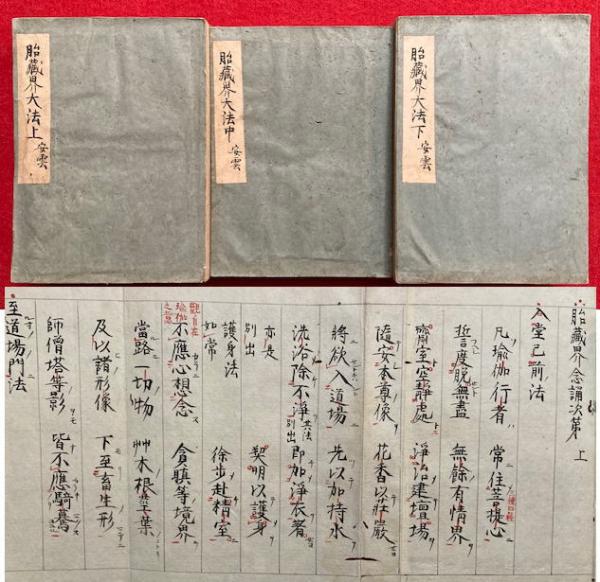 胎藏界大法上 安雲
胎藏界大法中 安雲
胎藏界大法下 安雲
胎藏界念誦次第 上
入堂已前法
凡瑜伽行者 常住菩提心
誓度脱無盡 無餘有情界
室空靜處 淨治建壇場
隨安本尊像 花香以莊嚴
將欲入道場 先以加持水
洗浴除不淨 共法別出 即加淨衣著
亦是別出 契明以護身
護身法如常 徐步赴精室
觀自在瑜伽之意
不應心想念 貪瞋等境界
當路一切物 艸木根莖葉
及以諸形像 下至畜生形
師僧塔等影 皆不應騎驀
至道場門法